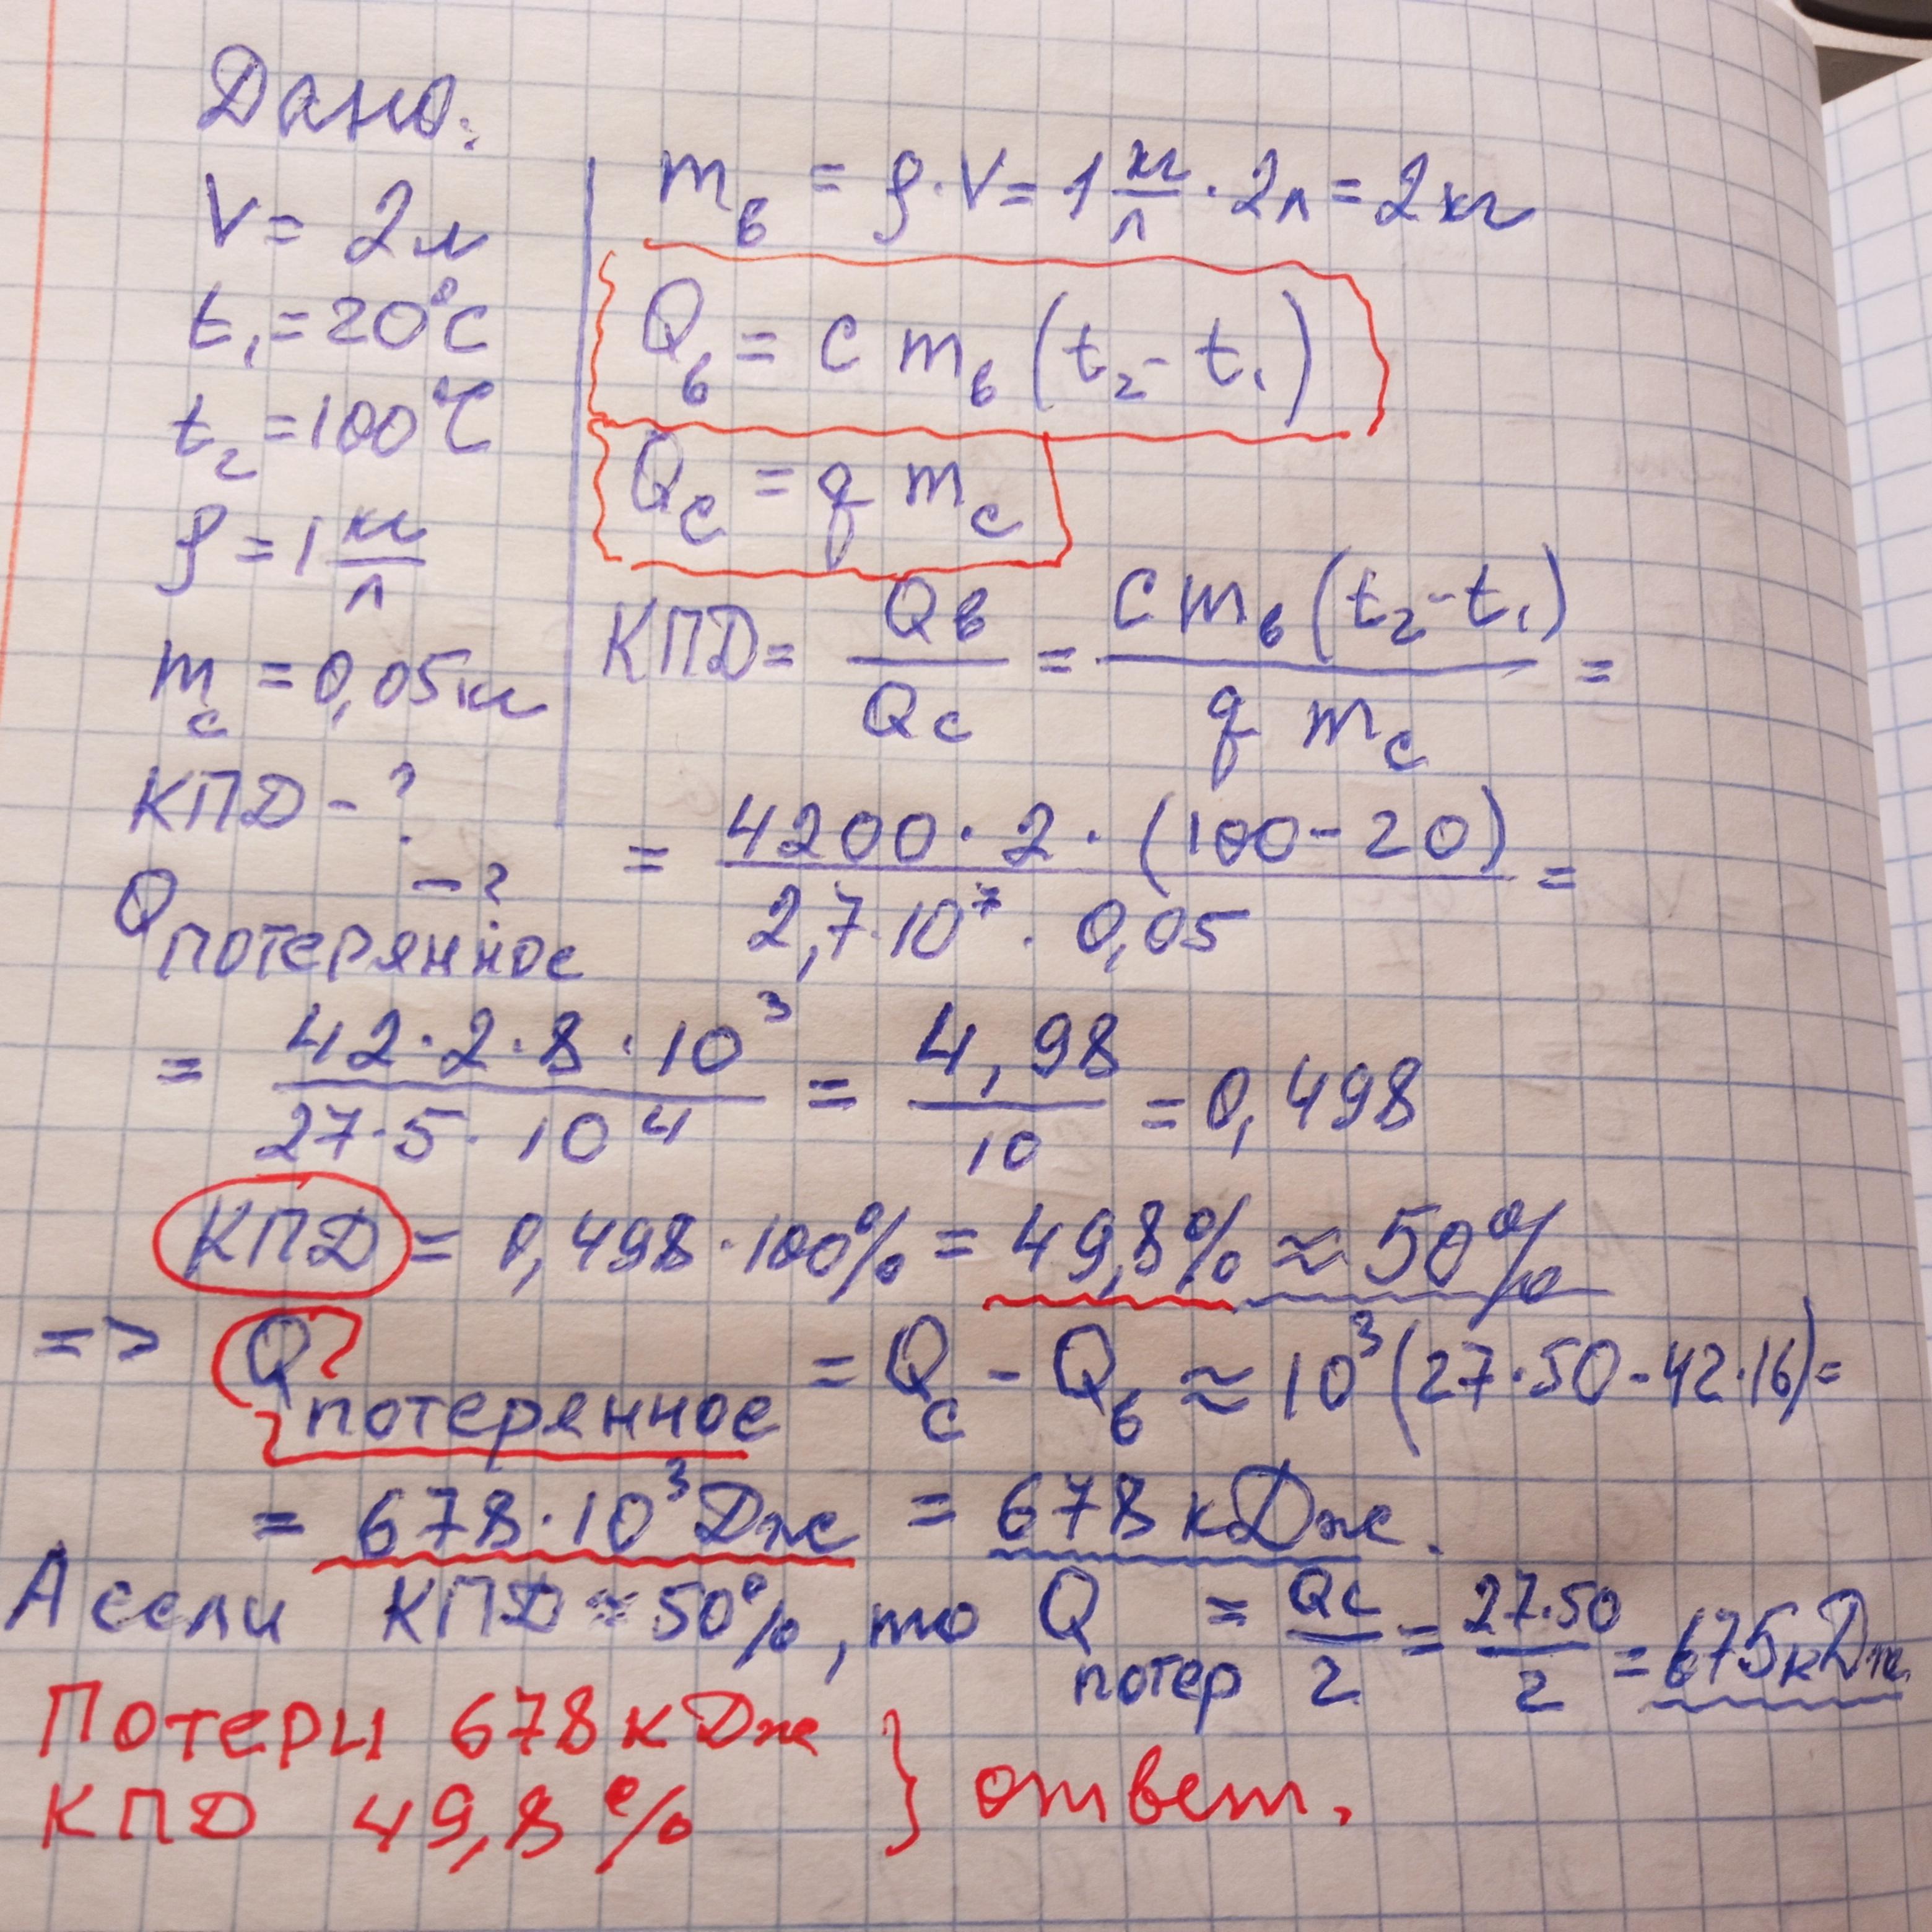 Дано:
V = 2 л
t₁ = 20°C
t₂ = 100°C
ρ = 1 кг/л
m_c = 0,05 кг
КПД - ?
Q потерянное - ?
m_в = ρ · V = 1 кг/л · 2 л = 2 кг
Q_в = c m_в (t₂ - t₁)
Q_c = q m_c
КПД = Q_в / Q_c = c m_в (t₂ - t₁) / q m_c =
= 4200 · 2 · (100 - 20) / 2,7 · 10⁷ · 0,05 =
= 42 · 2 · 8 · 10³ / 27 · 5 · 10⁴ = 4,98 / 10 = 0,498
КПД = 0,498 · 100% = 49,8% ≈ 50%
=> Q потерянное = Q_c - Q_в ≈ 10³ (27 · 50 - 42 · 16) =
= 678 · 10³ Дж = 678 кДж.
А если КПД ≈ 50%, то Q потер = Q_c / 2 = 27 · 50 / 2 = 675 кДж
Потери 678 кДж
КПД 49,8 % } ответ.